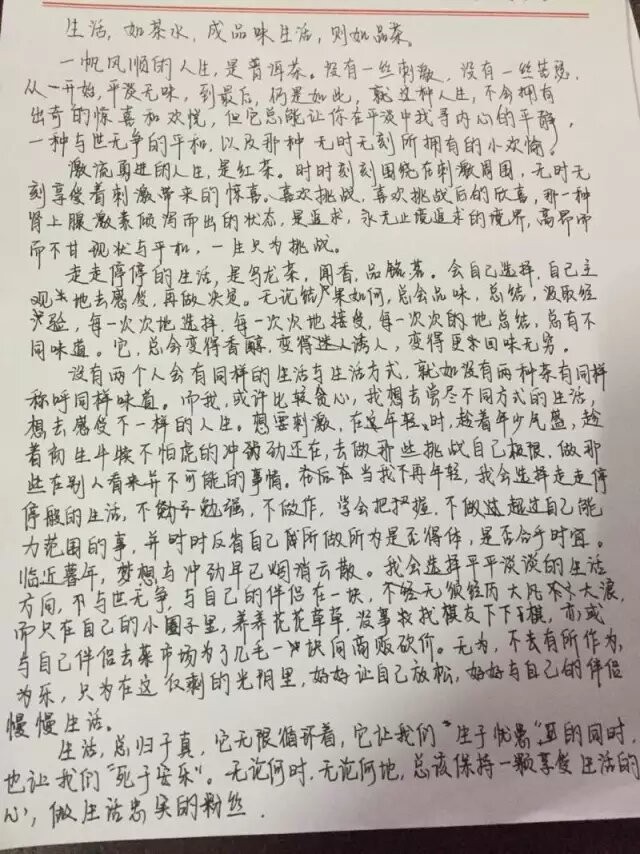 生活，如茶水，成品味生活，则如品茶。
一帆风顺的人生，是普洱茶。没有一丝刺激，没有一丝苦涩，
从一开始，平淡无味，到最后，仍是如此，就这种人生，不会拥有
出奇的惊喜和欢悦，但它总能让你在平淡中找寻内心的平静，
一种与世无争的平和，以及那种无时无刻所拥有的小欢愉。
激流勇进的人生，是红茶。时时刻刻围绕在刺激周围，无时无
刻享受着刺激带来的惊喜、喜欢挑战，喜欢挑战后的欣喜，那一种
肾上腺激素倾泻而出的状态，是追求，永无止境追求的境界，高昂而
而不甘现状与平和，一生只为挑战。
走走停停的生活，是乌龙茶，闻香，品铭茗。会自己选择，自己主
观地去感受，再做决定。无论结果如何，总会品味，总结，汲取经
验，每一次次地选择，每一次次地接受，每一次次的地总结，总有不
同味道。它，总会变得香醇，变得迷人诱人，变得更来回味无穷。
没有两个人会有同样的生活与生活方式，就如没有两种茶有同样
称呼同样味道。而我，或许比较贪心，我想去尝尽不同方式的生活，
想去感受不一样的人生。想要刺激，在这年轻时，趁着年少气盛，趁
着初生牛犊不怕虎的冲动还在，去做那些挑战自己极限，做那
些在别人看来并不可能的事情。而后在当我不再年轻，我会选择走走停
停般的生活，不勉强，不做作，学会把握，不做超过自己能
力范围的事，并时时反省自己所做所为是否得体，是否合乎时宜。
临近暮年，梦想与冲动早已烟消云散。我会选择平平淡淡的生活
方向，不与世无争，与自己的伴侣在一块，不经历大风大浪，
而只在自己的小圈子里，养养花花草草，没事找找棋友下下棋，亦或
与自己伴侣去菜市场为了几毛一块同商贩砍价。无为，不去有所作为，
为乐，只为在这仅剩的光阴里，好好让自己放松，好好与自己的伴侣
慢慢生活。
生活，总归于真，它无限循环着，它让我们"生于忧患"的同时，
也让我们"死于安乐"。无论何时，无论何地，总该保持一颗享受生活的
心，做生活忠实的粉丝．